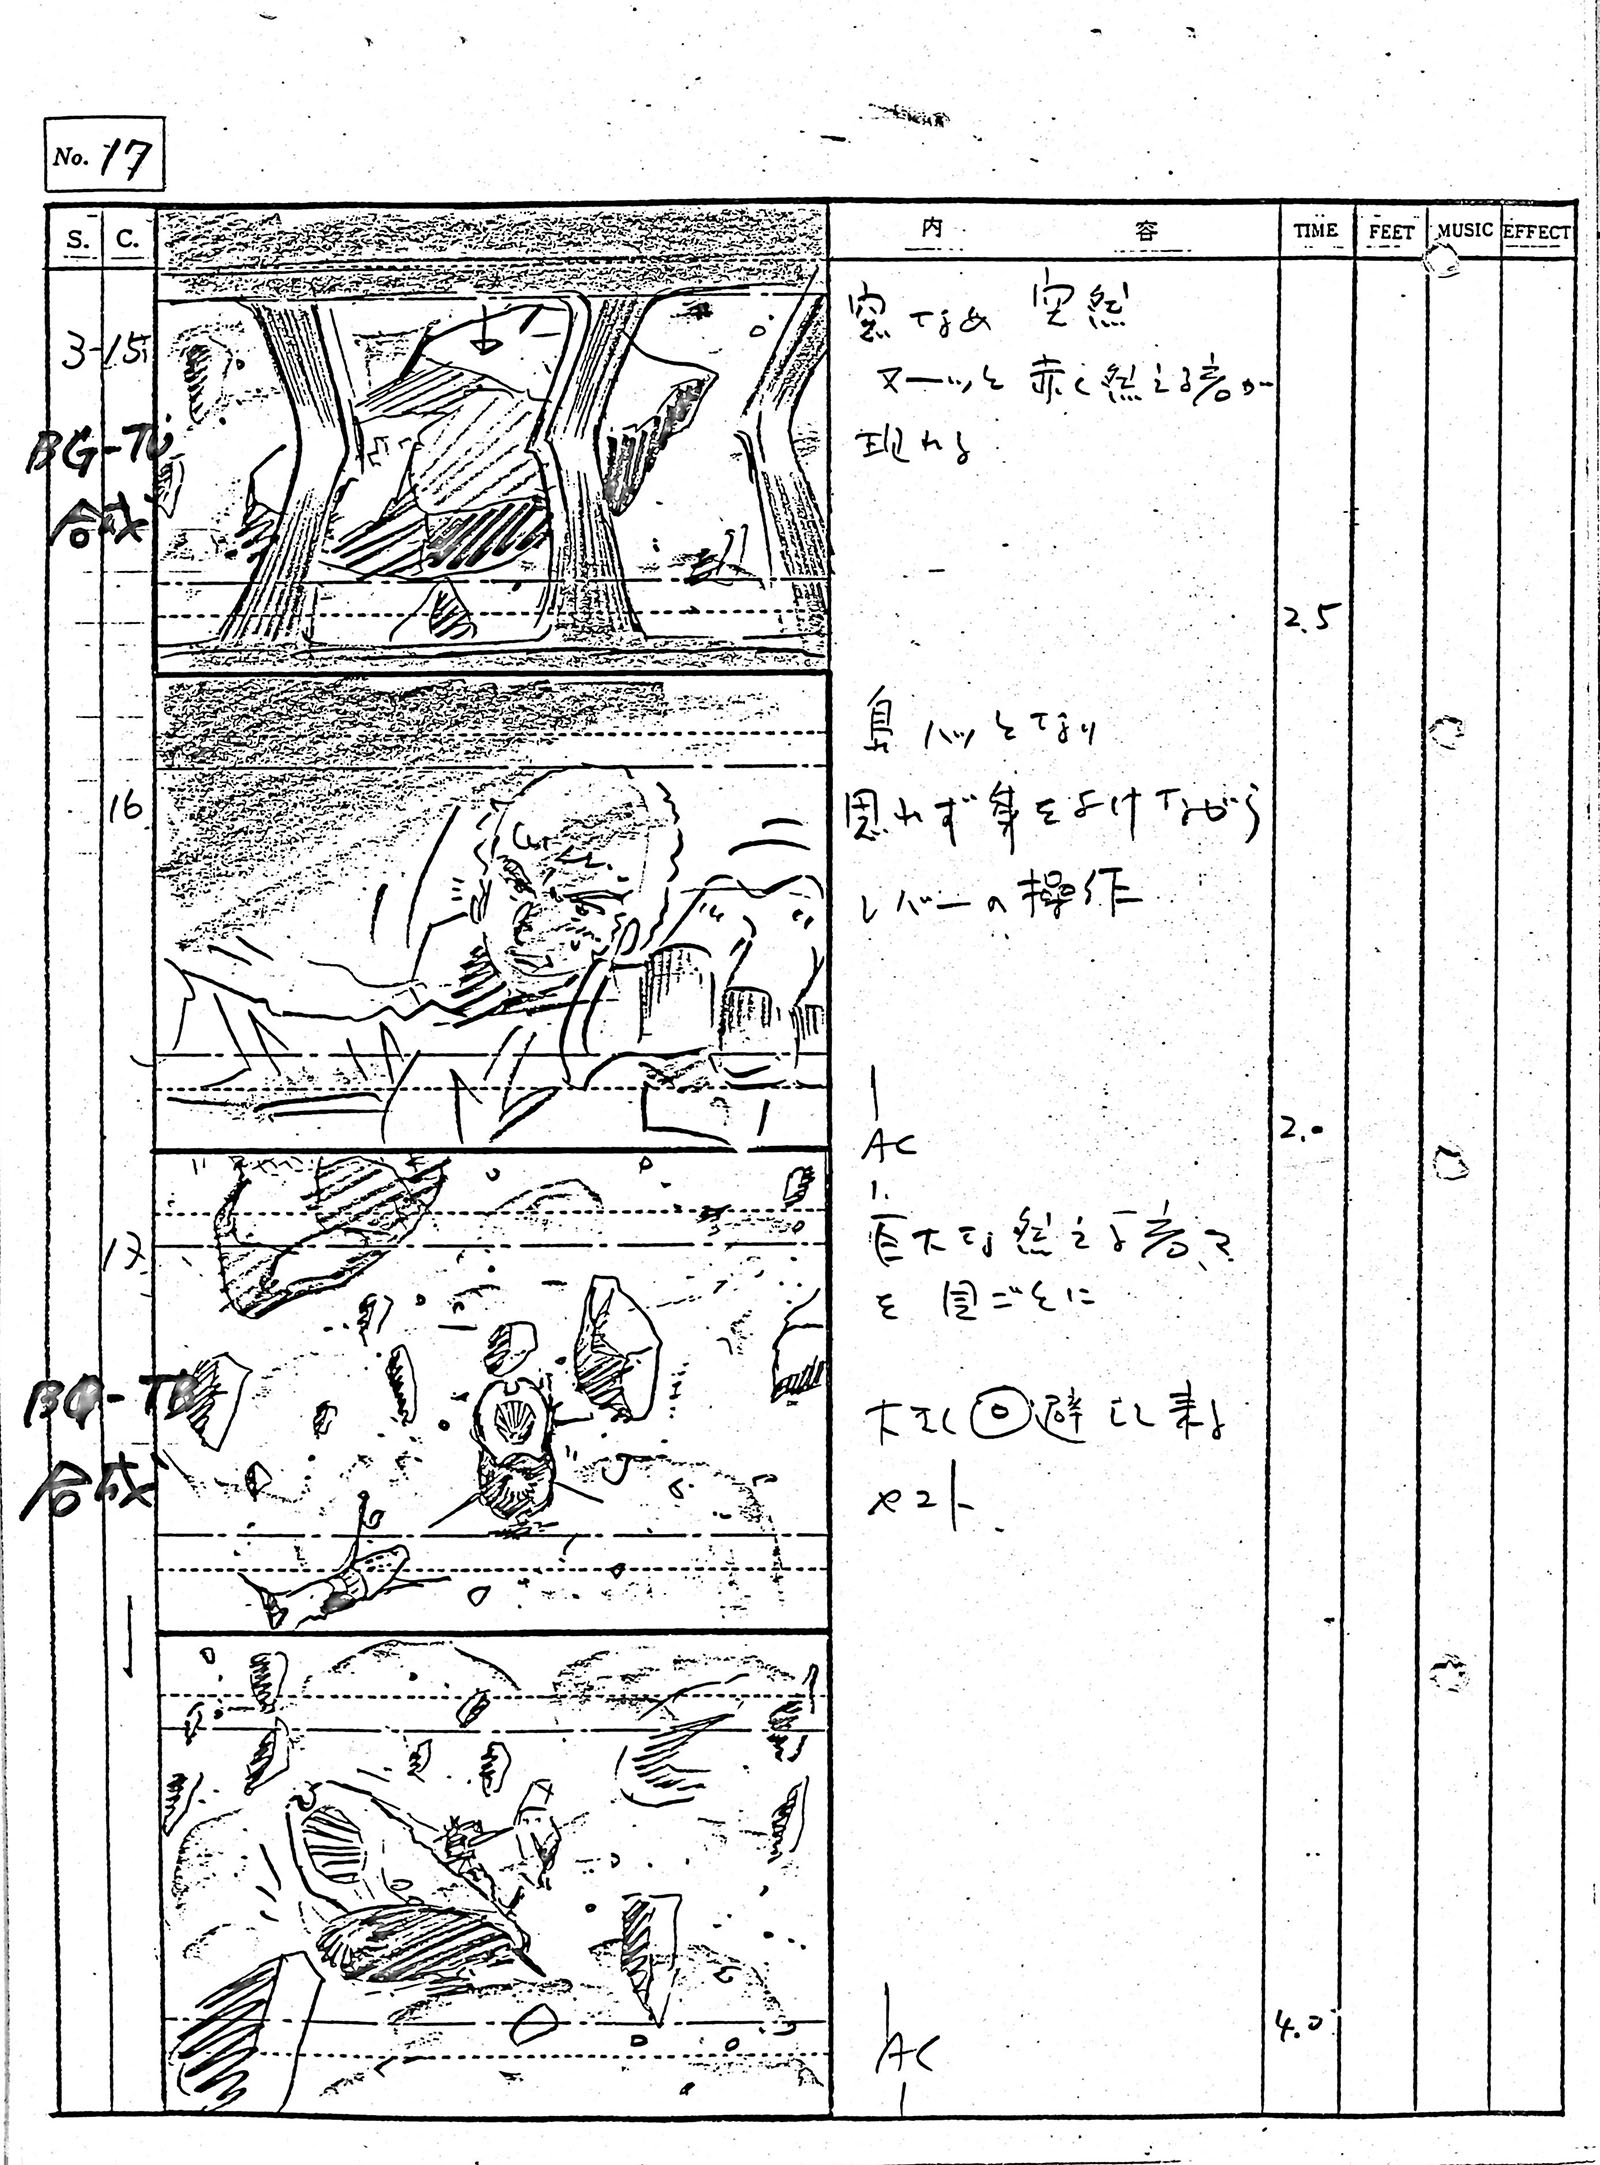 No. 17
S. C. 内 容 TIME FEET MUSIC EFFECT
3-15
窓なめ 突然
ヌーッと 赤く燃える岩が
現れる
BG-TU
合成
2.5
16
島 ハッとなり
思わず身をよけながら
レバーの操作
AC
2.0
17
巨大な燃える岩々
を
BG-TB
合成
大きく回避して来る
ヤマト
AC
4.0